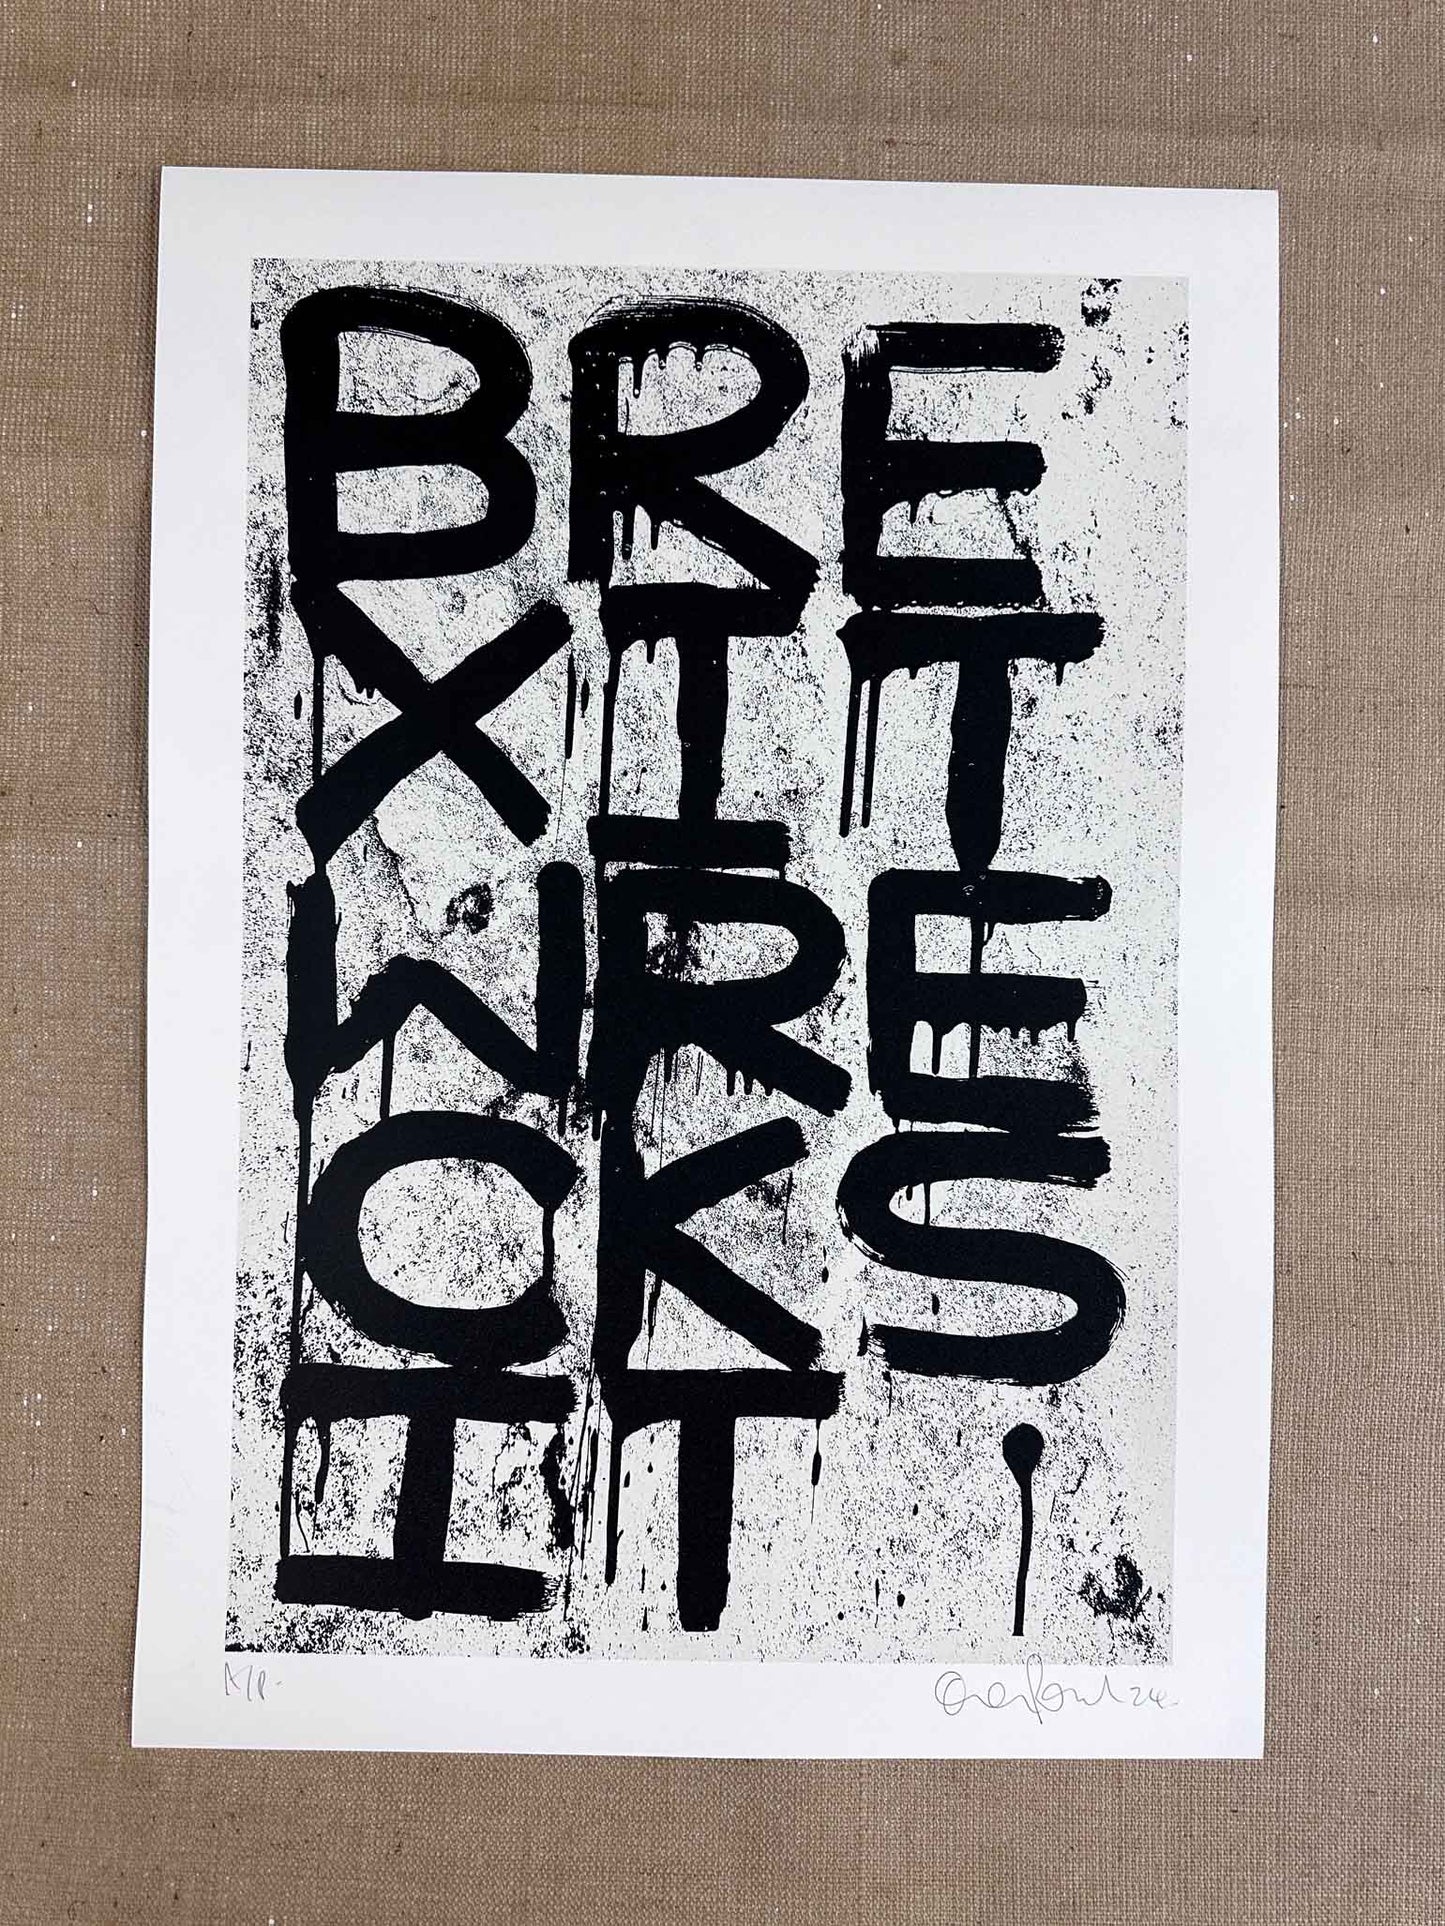 BRE
XIT
WRE
CKS
IT.
A/P.
24.